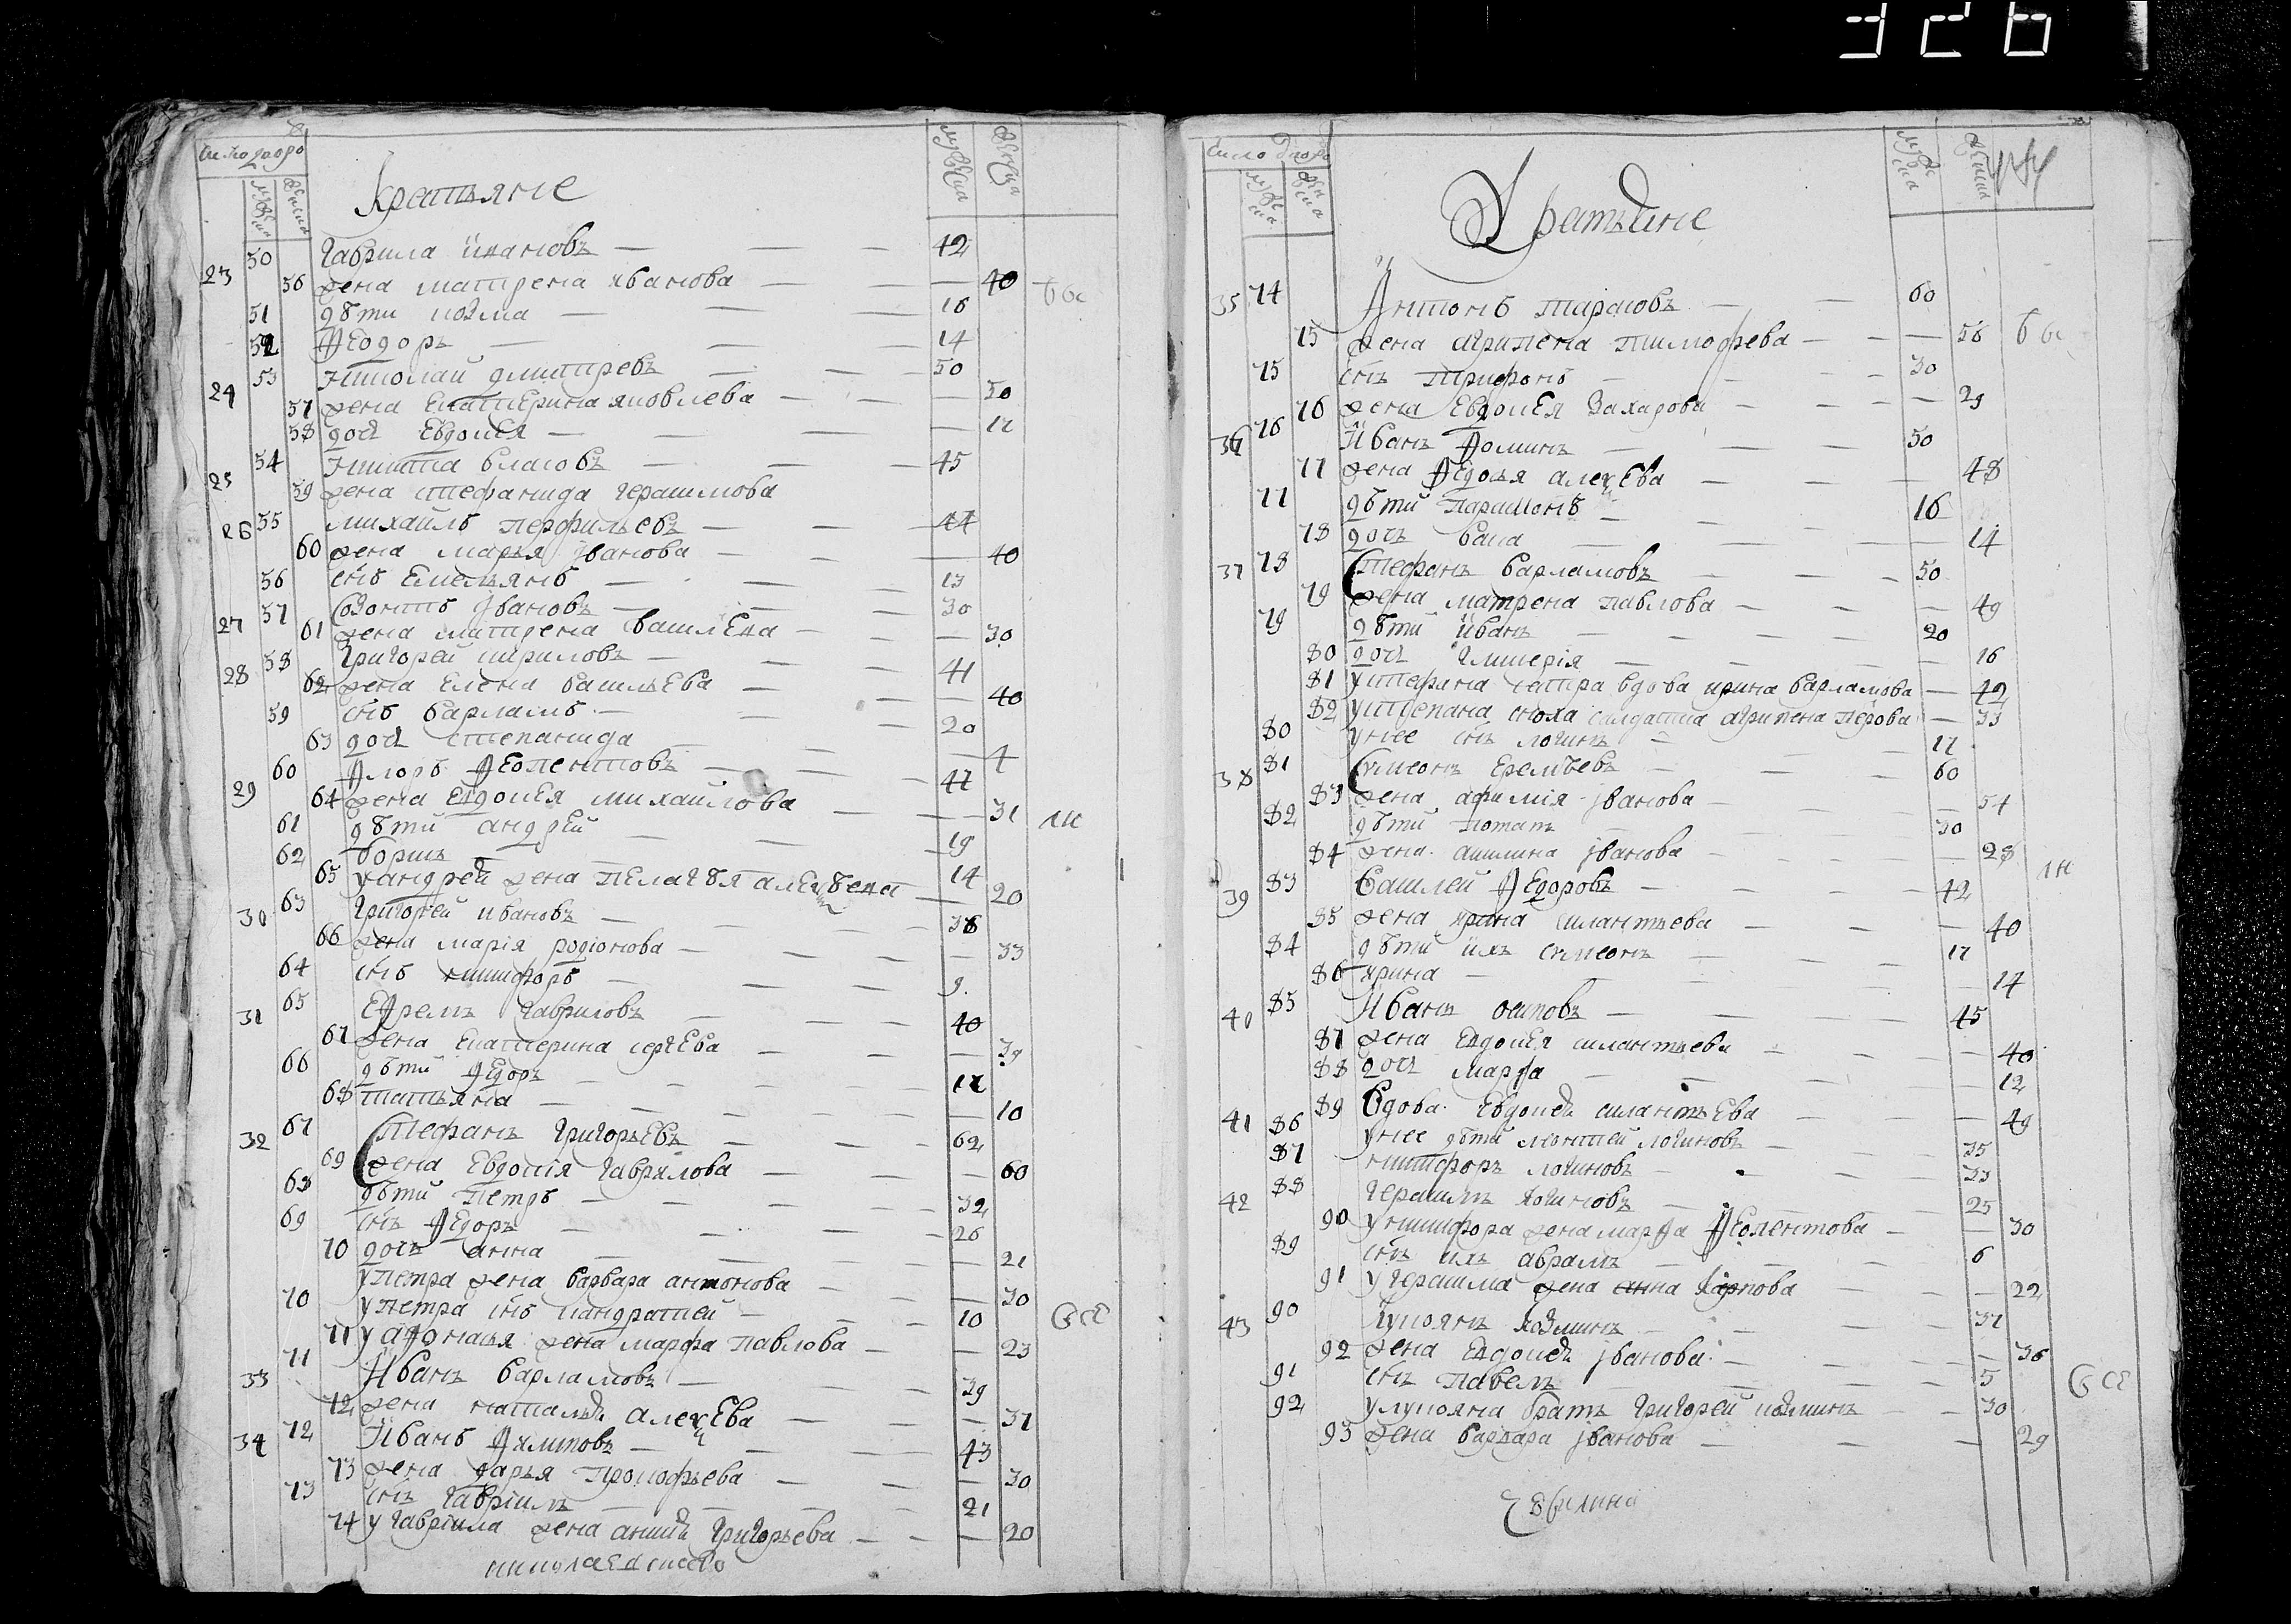 326
число дворо
мужеска
женска
мужеска
женска
Крестьяне
23 50 Гаврила ивановъ — 42
56 жена матрена иванова — 40
51 дѣти козма — 16
52 Ѳеодоръ — 14
24 53 николай дмитревъ — 50
57 жена екатерина яковлева — 50
58 дочь евдокея — 12
25 54 никита власовъ — 45
59 жена стефанида герасимова
26 55 михаилъ перфильевъ — 44
60 жена марья иванова — 40
56 снъ емельянъ — 13
27 57 созонтъ ивановъ — 30
61 жена матрена василева — 30
28 58 григорей кириловъ — 41
62 жена елена васильева — 40
59 снъ варламъ — 20
63 дочь степанида — 4
29 60 Ѳлоръ Ѳеопентовъ — 42
64 жена евдокея михаилова — 31
61 дѣти андрей — 19
62 борисъ — 14
65 у андрей жена пелагѣя алексѣева — 20
30 63 григорей ивановъ — 38
66 жена марія родіонова — 33
64 снъ никифоръ — 9
31 65 еѲремъ гавриловъ — 40
67 жена екатерина сергева — 39
66 дѣти Ѳедоръ — 12
68 татьяна — 10
32 67 Стефанъ григорьевъ — 62
69 жена евдокія гаврилова — 60
68 дѣти петръ — 32
69 снъ Ѳедоръ — 26
70 дочь анна — 21
у петра жена варвара антонова — 30
70 у петра снъ кандратей — 10
71 у аѲонасья жена марфа павлова — 23
33 71 Иванъ варламовъ — 39
72 жена наталья алексева — 37
34 72 Иванъ Ѳилиповъ — 43
73 жена дарья прокофьева — 30
73 снъ гавріилъ — 21
74 у гавріила жена анисья григорьева — 20
николаевского
число дворо
мужеска
женска
мужеска
женска
Крестьяне
35 74 Антонъ тарасовъ — 60
75 жена агрипена тимофева — 56
75 снъ трифонъ — 30
76 жена евдокея захарова — 29
36 76 Иванъ Ѳоминъ — 50
77 жена Ѳедосья алексева — 48
77 дѣти парамонъ — 16
78 дочь васа — 14
37 78 Стефанъ варламовъ — 50
79 жена матрена павлова — 49
79 дѣти иванъ — 20
80 дочь гликерія — 16
81 у стефана сестра вдова ирина варламова — 42
82 у степана сноха салдатка агрипена перова — 33
80 у нее снъ логинъ — 12
38 81 Симеонъ еремѣевъ — 60
83 жена афимія иванова — 54
82 дѣти потапъ — 30
84 жена акилина иванова — 28
39 83 Василей Ѳедоровъ — 42
85 жена ирина силантьева — 40
84 дѣти ихъ симеонъ — 12
86 ирина — 14
40 85 Иванъ осиповъ — 45
87 жена евдокея силантьева — 40
88 дочь марфа — 12
41 89 Вдова евдокея силантьева — 49
86 у нее дѣти мокѣей логиновъ — 35
87 никифоръ логиновъ — 33
42 88 герасимъ логиновъ — 25
90 у никифора жена марѲа Ѳеопентова — 30
89 снъ ихъ аврамъ — 6
91 у герасима жена анна карпова — 22
43 90 Лупоянъ козминъ — 37
92 жена евдокея иванова — 36
91 снъ павелъ — 5
92 у лупояна братъ григорей козминъ — 30
93 жена варвара иванова — 29